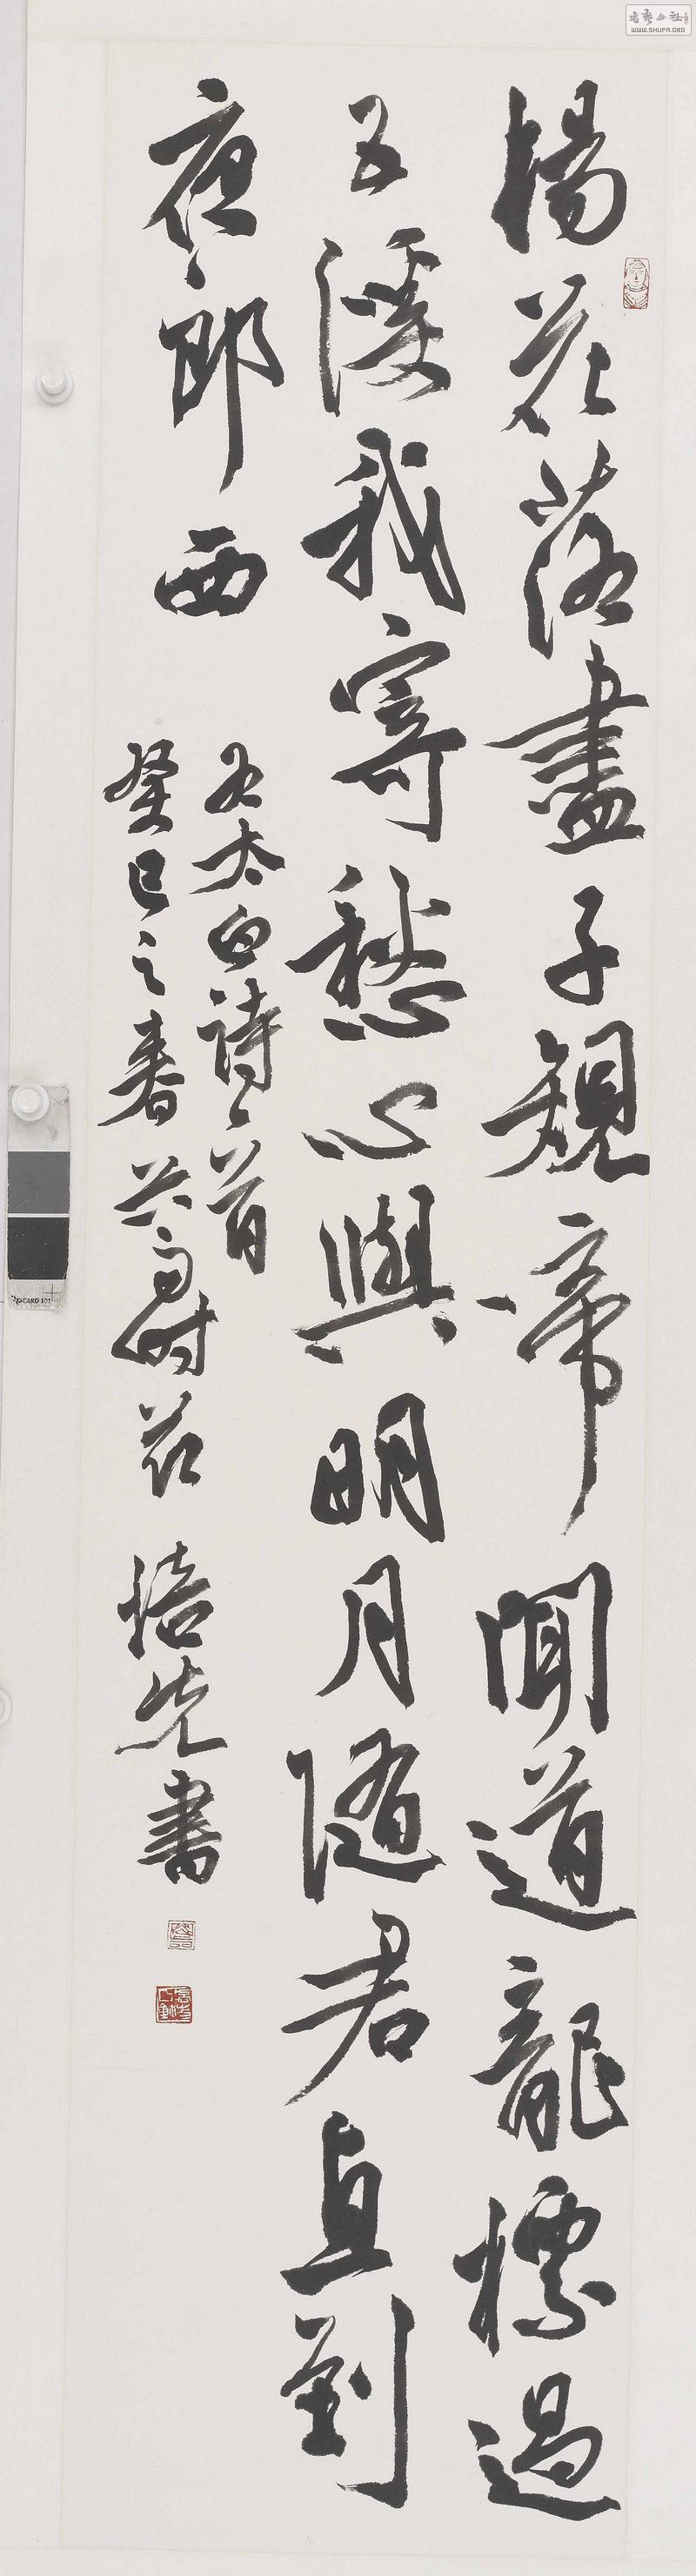 楊花落盡子規啼聞道龍標過
五溪我寄愁心與明月隨君直到
夜郎西
太白詩一首
癸巳之春
培先書
WWW.SHUFA.ORG